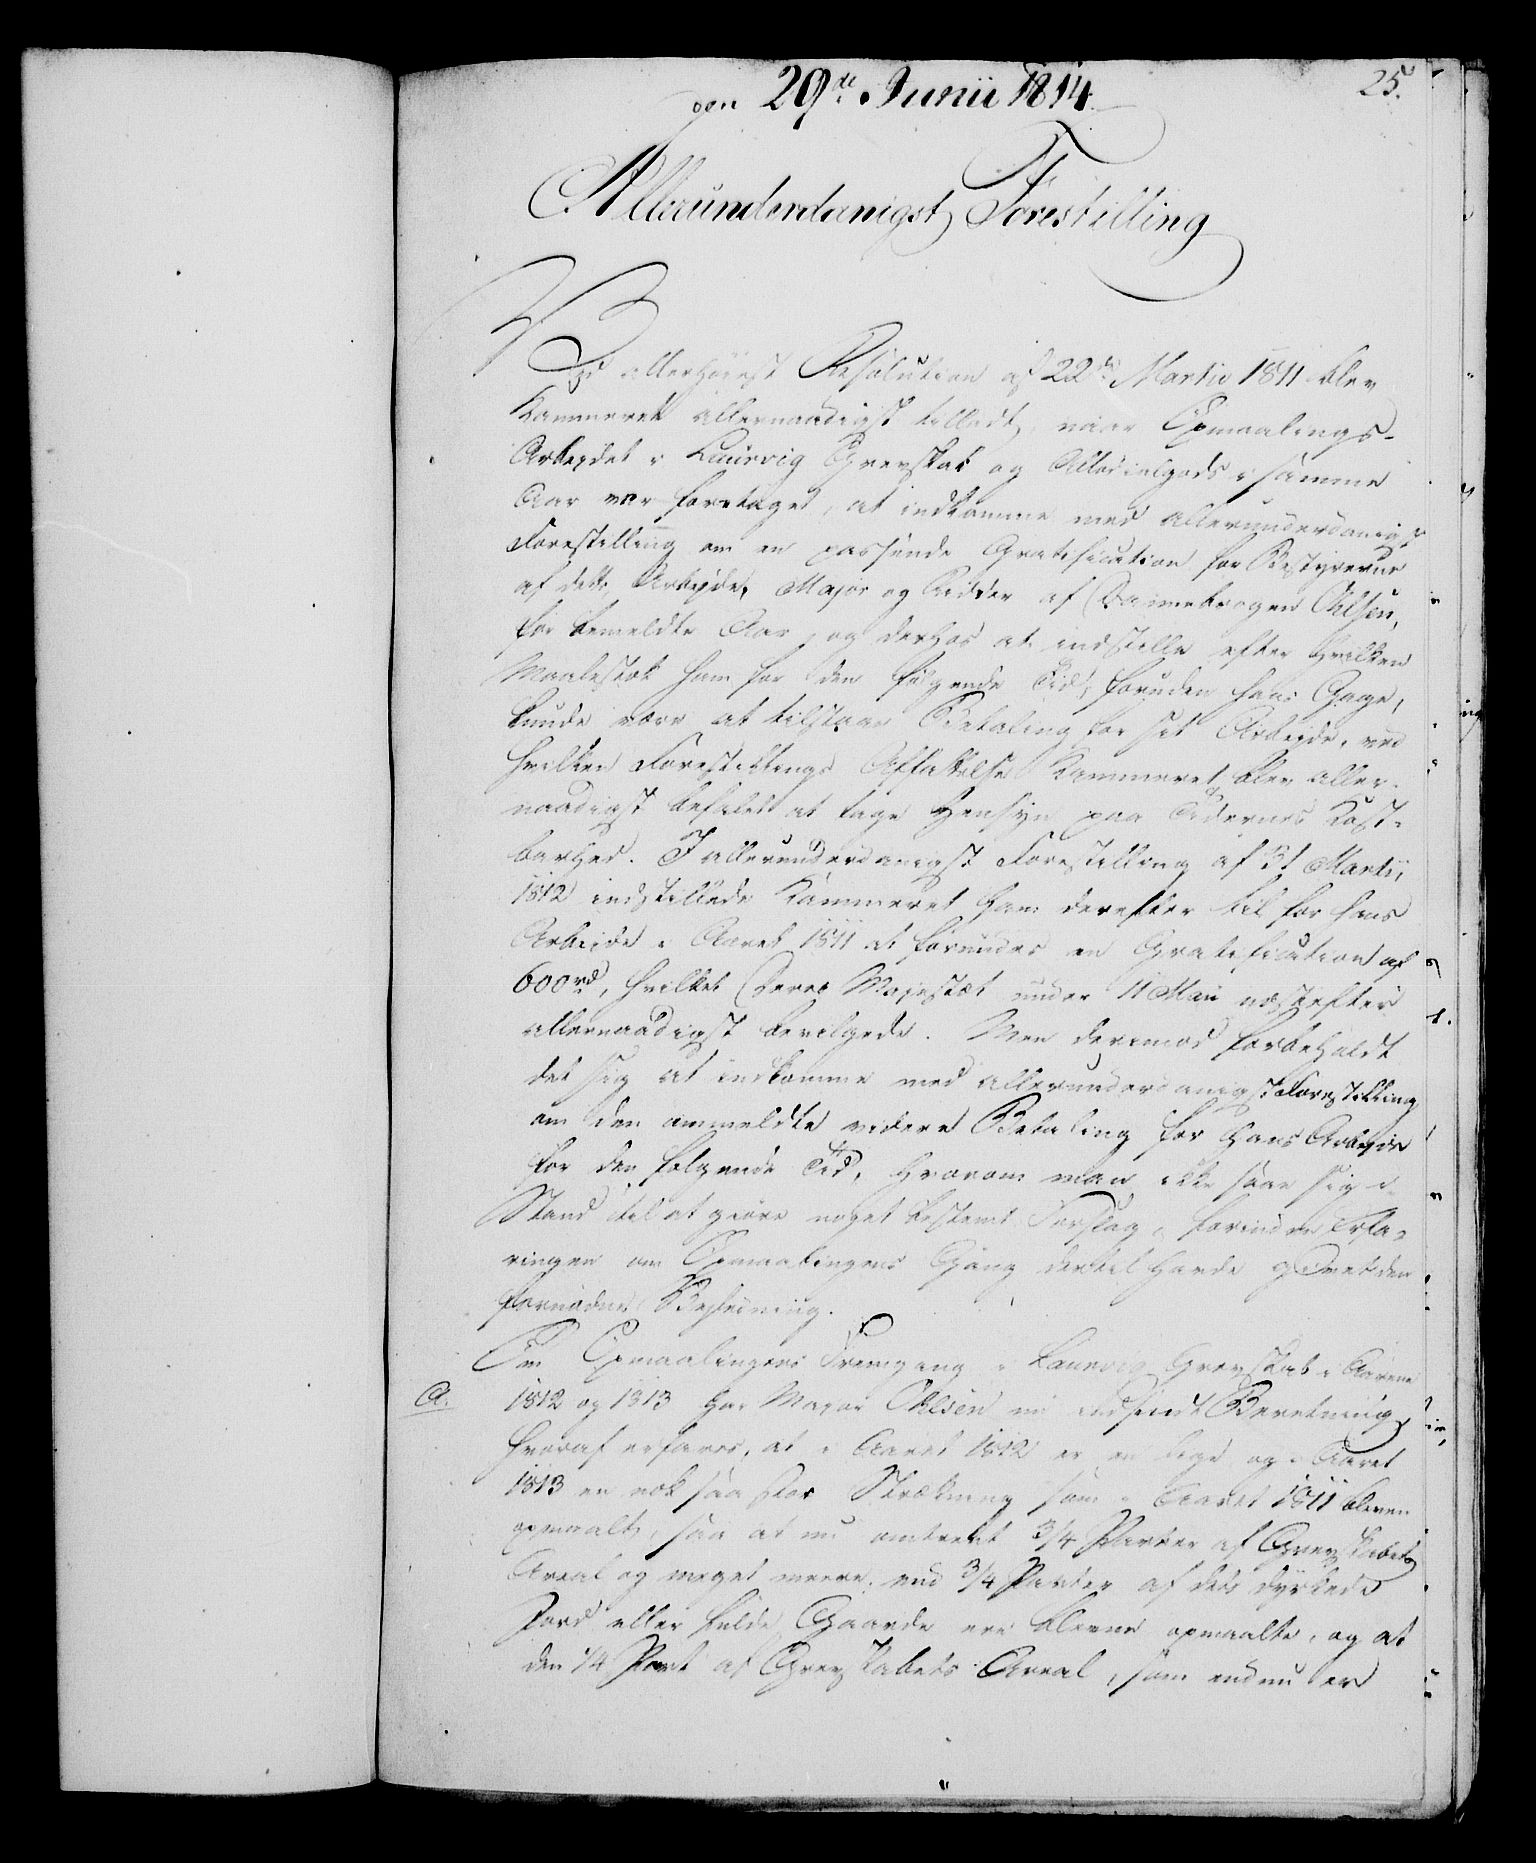 den 29de Junii 1814
25.
Allerunderdanigst Forestilling
Ved allerhøiest Resolution af 22de Martii 1811 blev
Kammeret allernaadigst tilladt, naar Opmaalings-
Arbeydet i Laurvig Grevskab og Allodialgods i samme
Aar var foretaget, at indkomme med allerunderdanigst
Forestilling om en passende Gratification for Bestyreren
af dette Arbeyde, Major og Ridder af Dannebrogen Ohlsen,
for bemeldte Aar, og derhos at indstille efter hvilken
Maalestok ham for den følgende Tid, foruden hans Gage,
kunde være at tilstaae Betaling for sit Arbeyde, ved
hvilken Forestillings Affattelse Kammeret blev aller-
naadigst befalet at tage Hensyn paa Tidernes Kost-
barhed. I allerunderdanigst Forestilling af 31 Martii
1812 indstillede Kammeret ham derefter til for hans
Arbeide i Aaret 1811 at forundes en Gratification af
600 rd, hvilket Deres Majestæt under 11 Maii næstefter
allernaadigst bevilgede. Men derimod forbeholdt
det sig at indkomme med allerunderdanigst Forestilling
om den ommeldte videre Betaling for hans Arbeyde
for den følgende Tid, hvorom man ikke saae sig i
Stand til at giøre noget bestemt Forslag, forinden Erfa-
ringen om Opmaalingens Gang dertil havde givet den
fornødne Veiledning.
Om Opmaalingens Fremgang i Laurvig Grevskab i Aarene
A. 1812 og 1813 har Major Ohlsen nu indsendt Beretning,
hvoraf erfares, at i Aaret 1812 er en lige og i Aaret
1813 en nok saa stor Strækning som i Aaret 1811 bleven
opmaalt, saa at nu omtrent 3/4 Parter af Grevskabets
Areal og meget meere end 3/4 Parter af dets dyrkede
Jord eller fulde Gaarde ere blevne opmaalte, og at
den 1/4 Part af Grevskabets Areal, som endnu er